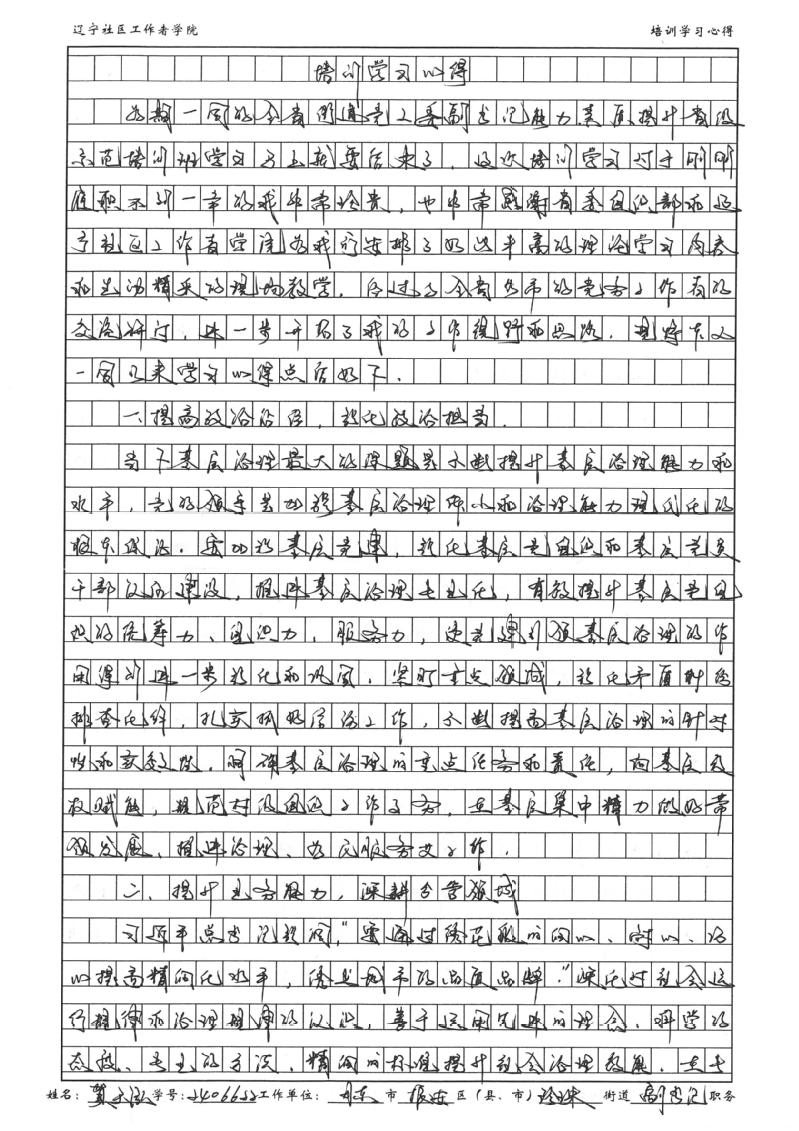 辽宁社区工作者学院 培训学习心得
培训学习心得
为期一周的全省街道党工委副书记能力素质提升省级
示范培训班学习马上就要结束了，这次培训学习对于刚刚
履职不到一年的我非常珍贵，也非常感谢省委组织部和辽
宁社区工作者学院为我们安排了如此丰富的理论学习内容
和生动精采的现场教学，经过了全省各市的党务工作者的
交流研讨，进一步开拓了我的工作视野和思路，现将本人
一周以来学习心得总结如下．
一、提高政治站位，强化政治担当．
当下基层治理最大的课题是不断提升基层治理能力和
水平，党的领导是加强基层治理体系和治理能力现代化的
根本保证．要加强基层党建，强化基层党组织和基层党员
干部队伍建设，推进基层治理专业化，有效提升基层党组
织的统筹力、组织力、服务力，使党建引领基层治理的作
用得到进一步强化和巩固，紧盯重点领域，强化矛盾纠纷
排查化解，扎实抓好信访工作，不断提高基层治理的针对
性和实效性．明确基层治理的重点任务和责任，向基层放
权赋能，规范村级组织工作事务，让基层集中精力做好带
领发展、推进治理、为民服务等工作．
二、提升业务能力，深耕分管领域
习近平总书记强调，“要通过绣花般的细心、耐心、巧
心提高精细化水平，绣出城市的品质品牌．”深化对社会运
行规律和治理规律的认识，善于运用先进的理念、科学的
态度、专业的方法、精细的标准提升社会治理效能．
姓名： 学号：2406622工作单位：丹东 市 振安 区（县、市）珍珠 街道 副书记 职务